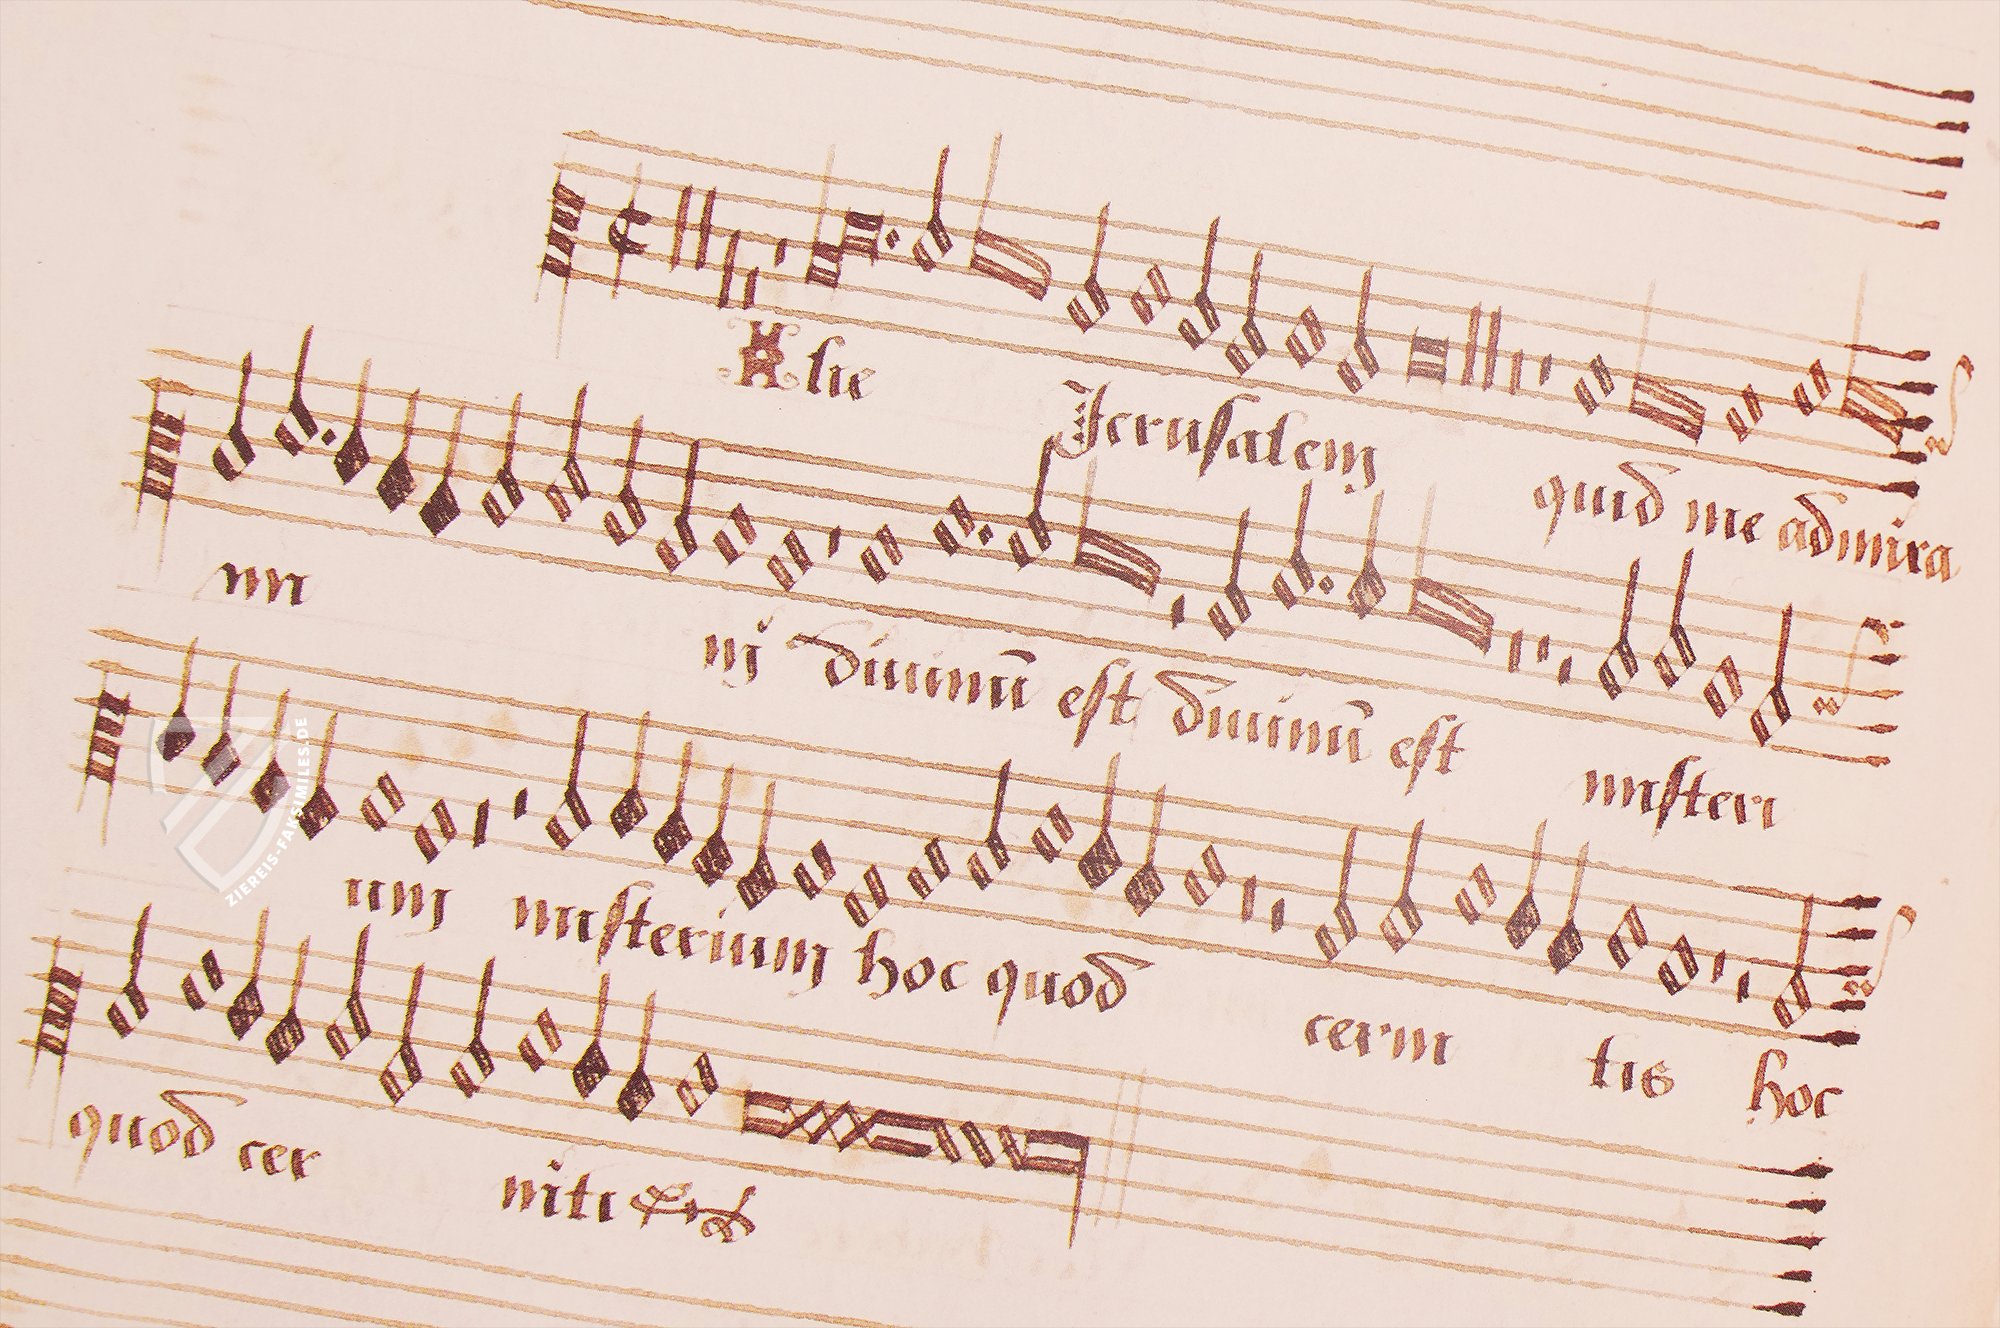 Filie Jerusalem quid me admira
mi nj diuinū est diuinū est misteri
um misterium hoc quod cerni tis hoc
quod cer nitis
ZIEREIS-FAKSIMILES.DE